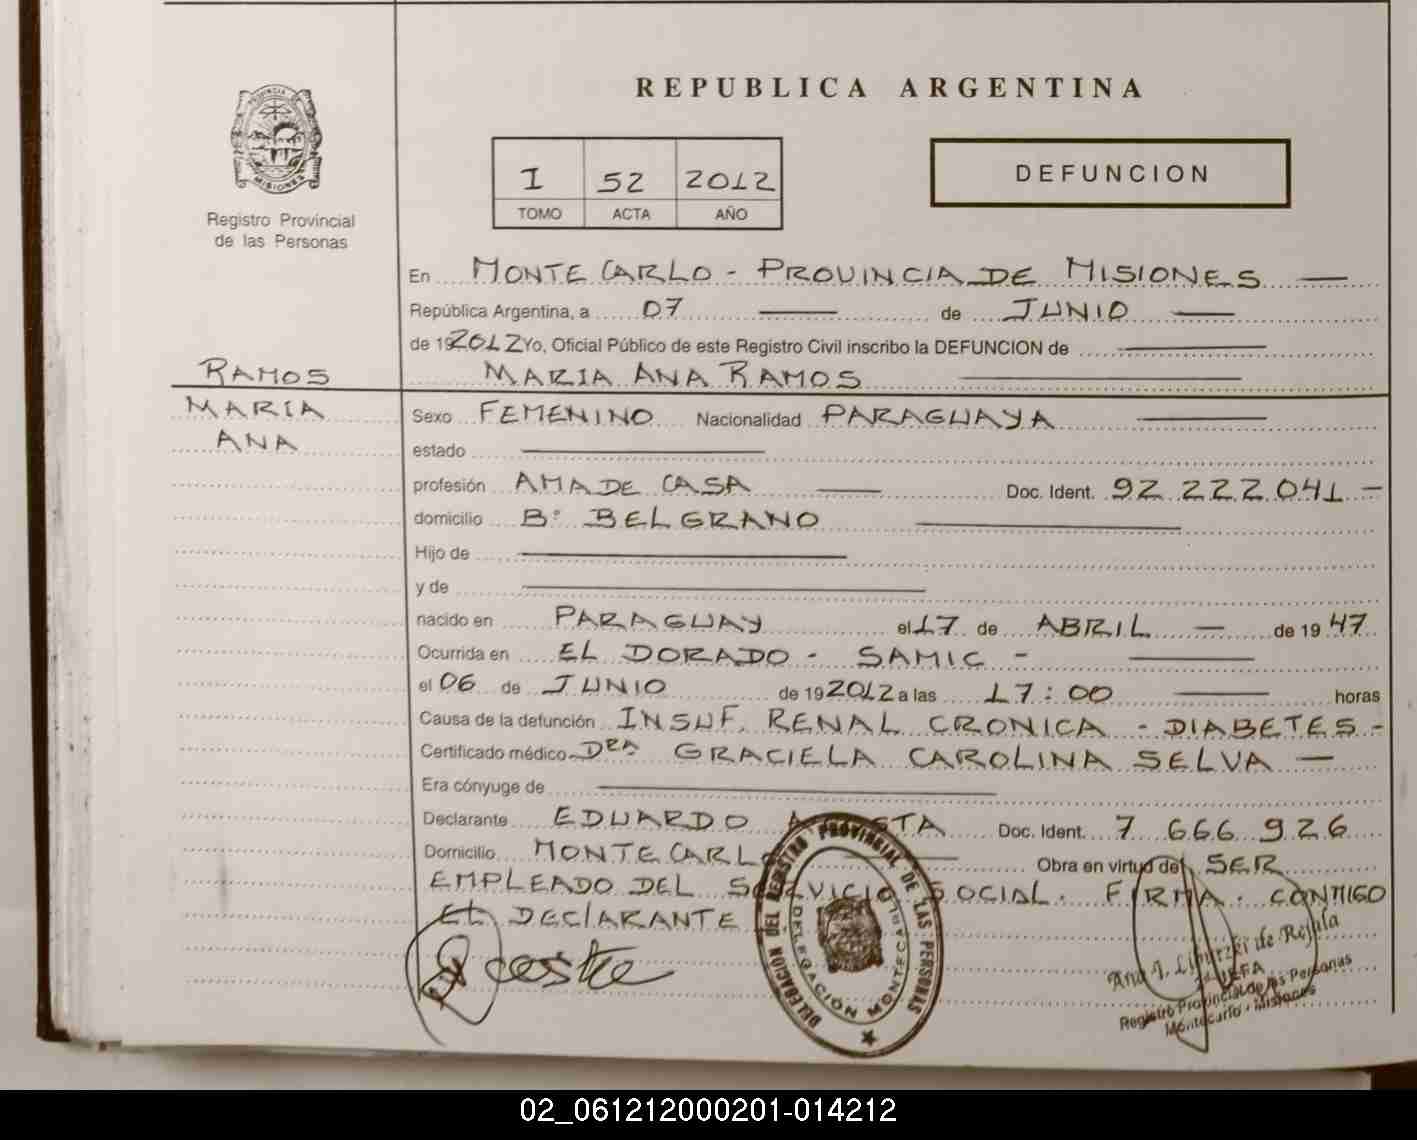 REPUBLICA ARGENTINA
PROVINCIA DE
MISIONES
Registro Provincial
de las Personas
I 52 2012
TOMO ACTA AÑO
DEFUNCION
En MONTE CARLO - PROVINCIA DE MISIONES
República Argentina, a 07 de JUNIO
de 192012 Yo, Oficial Público de este Registro Civil inscribo la DEFUNCION de
RAMOS
MARIA ANA RAMOS
MARIA
ANA
Sexo FEMENINO Nacionalidad PARAGUAYA
estado
profesión AMA DE CASA Doc. Ident. 92 222 041 -
domicilio Bº BELGRANO
Hijo de
y de
nacido en PARAGUAY el 17 de ABRIL - de 19 47
Ocurrida en EL DORADO - SAMIC -
el 06 de JUNIO de 192012 a las 17:00 horas
Causa de la defunción INSUF. RENAL CRONICA - DIABETES -
Certificado médico DRA GRACIELA CAROLINA SELVA
Era cónyuge de
Declarante EDUARDO Doc. Ident. 7 666 926
Domicilio MONTE CARLO Obra en virtud de SER
EMPLEADO DEL SERVICIO SOCIAL. FIRMA. CONMIGO
EL DECLARANTE
Acosta
DELEGACION DEL REGISTRO PROVINCIAL DE LAS PERSONAS
DELEGACIÓN MONTECARLO
JEFA
Registro Provincial de las Personas
Montecarlo - Misiones
02_061212000201-014212